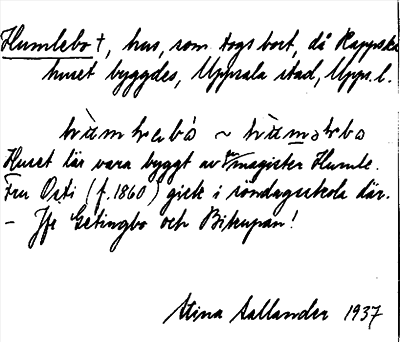 Humlebo †, hus, som togs bort, då Kappska
huset byggdes, Uppsala stad, Upps.l.
Huset lär vara byggt av magister Humle.
Fru Osti (f. 1860) gick i söndagsskola där.
– Jfr Getingbo och Bikupan!
Stina Sallander 1937